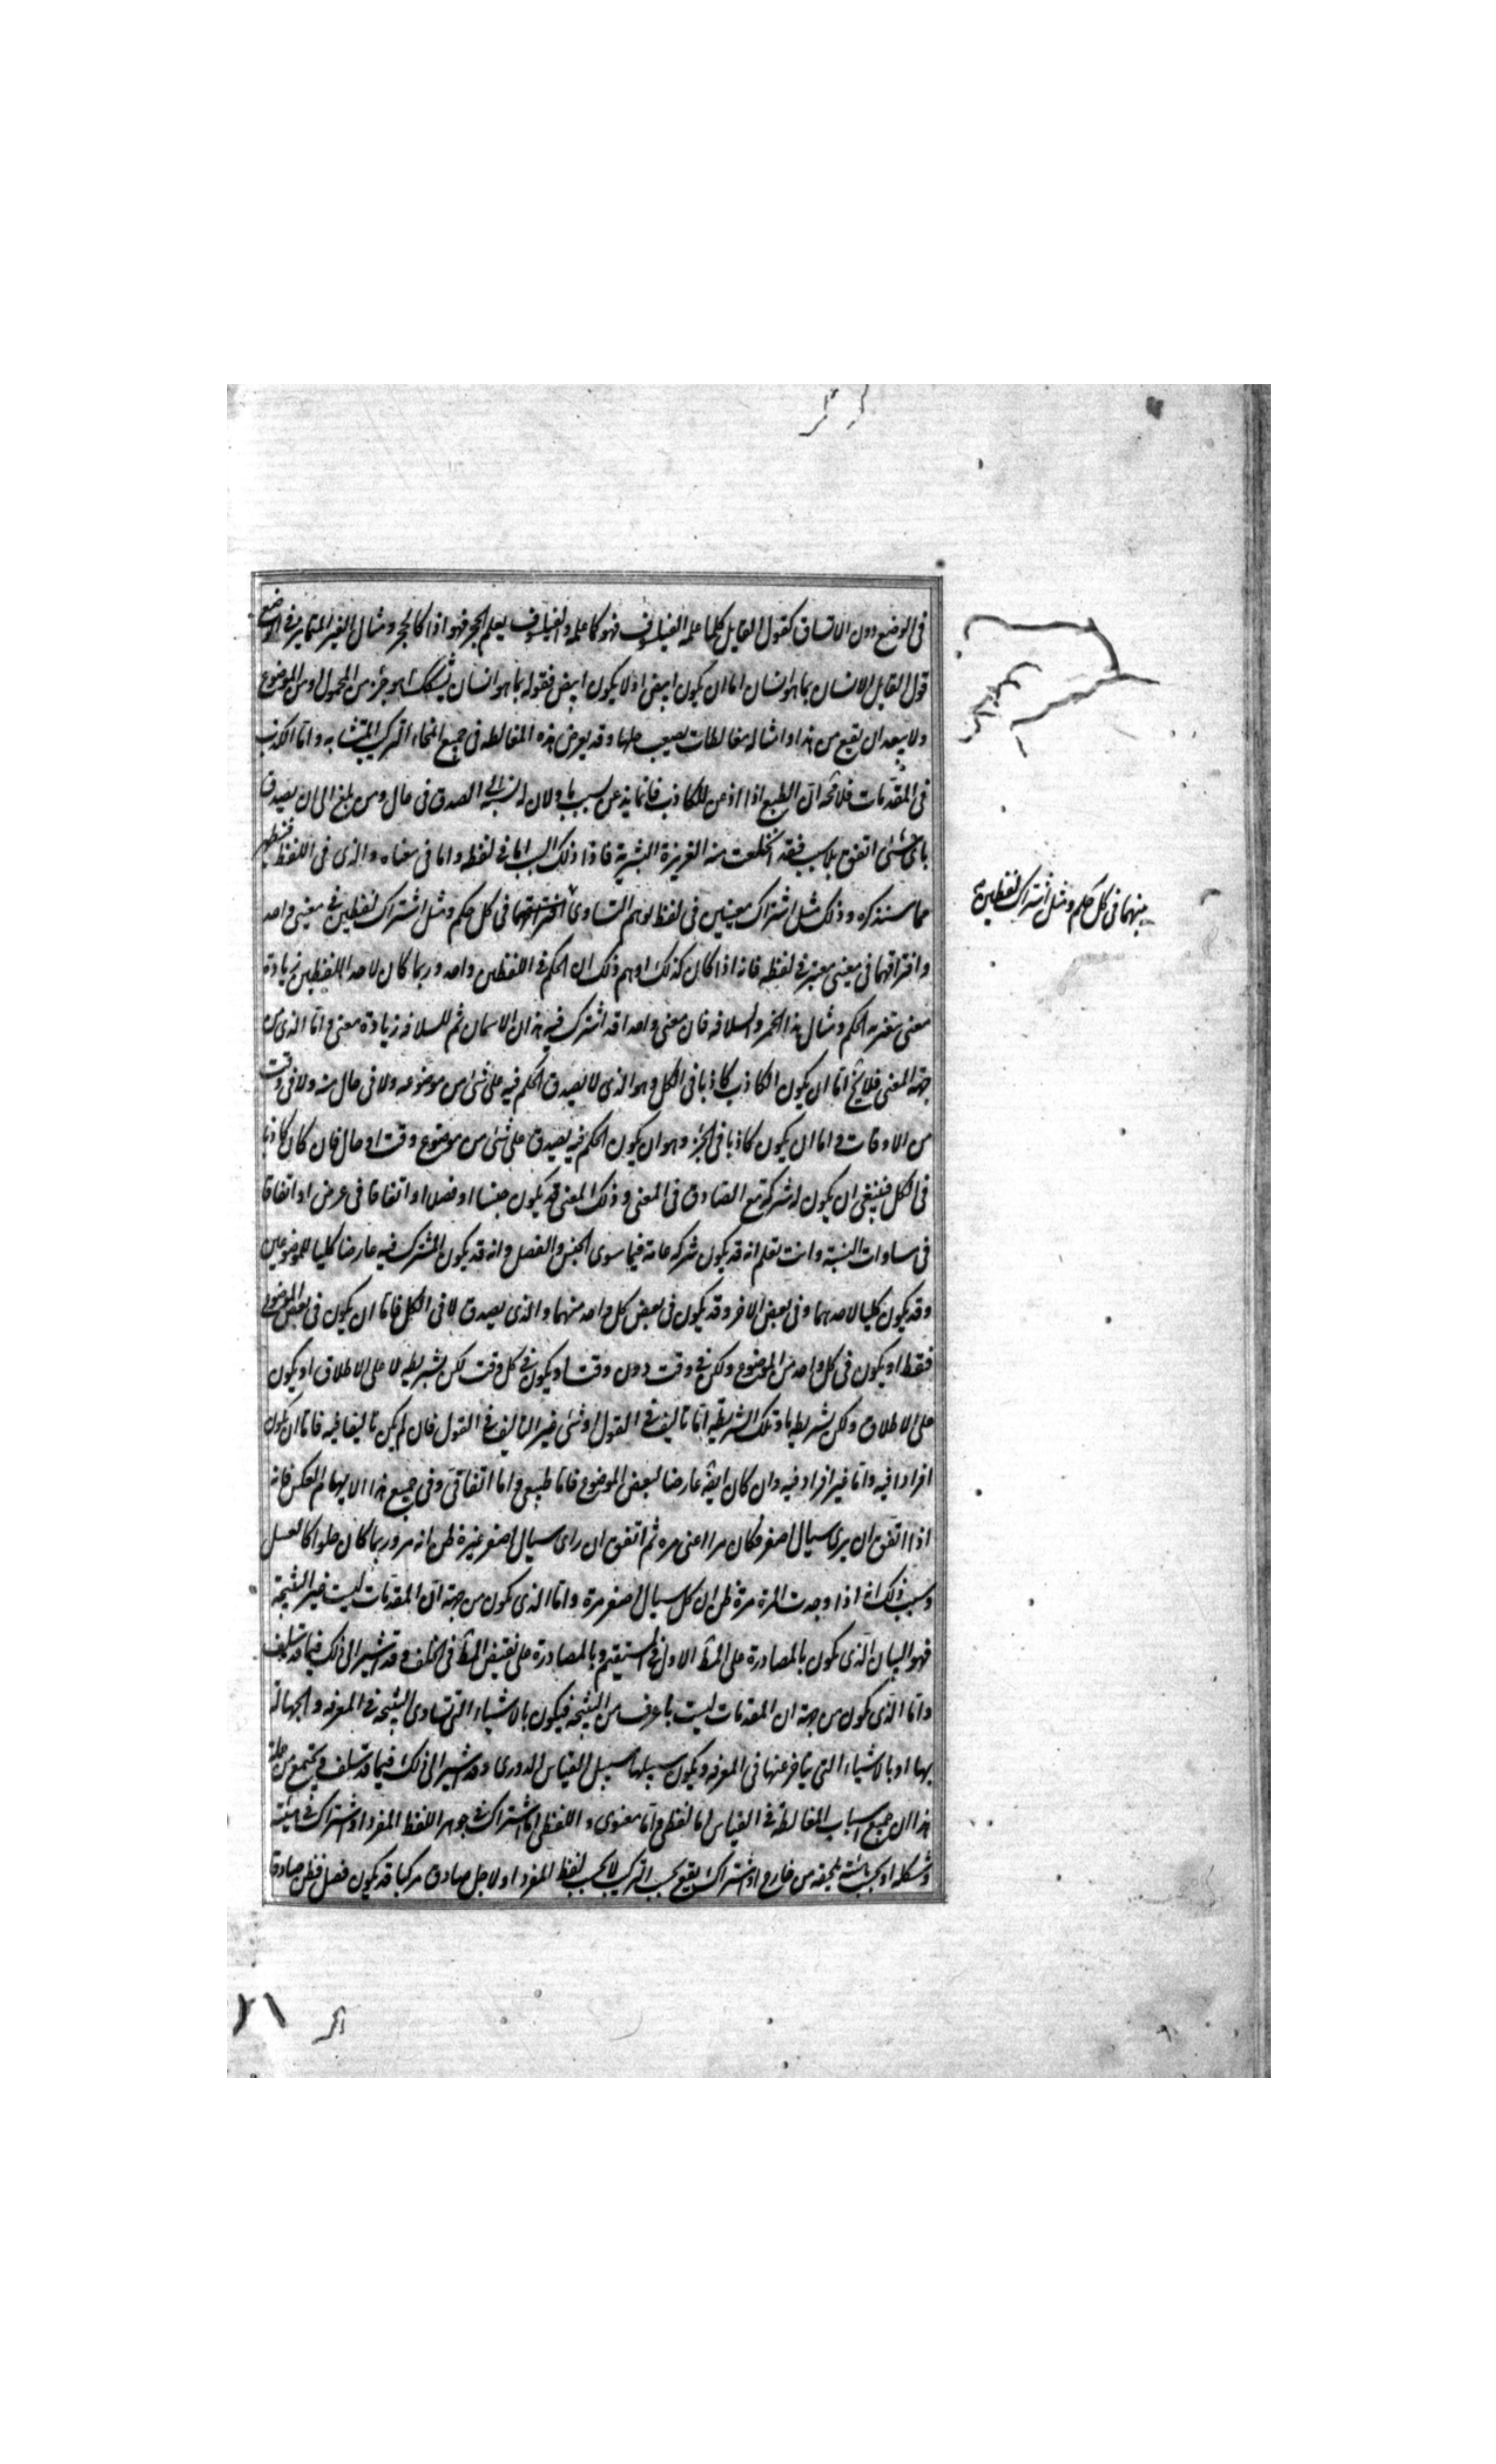 فى الوضع دون الاتساق كقول القايل كلما علمه الفيلسوف فهو كما علمه والفيلسوف يعلم الحجر فهو اذا كالحجر ومثال الغير المتمايز فى الوضع
قول القايل الانسان بما هو انسان اما ان يكون ابيض او لا يكون ابيض فقوله بما هو انسان يشكك اهو جزء من المحمول او من الموضوع
ولا يبعد ان يقع من هذا وامثاله مغالطات يصعب حلها وقد يعرض هذه المغالطه فى جميع انحاء التركيب المتشابه واما الكذب
فى المقدمات فلا محه ان الطبع اذا اذعن للكاذب فانما يذعن لسبب ما ولان له نسبة الى الصدق فى حال ومن بلغ الى ان يصدق
باى شئ اتفق بلا سبب فقد انخلعت منه الغريزة البشرية فاذا ذلك السبب اما فى لفظ واما فى معناه والذى فى اللفظ فيظهر
مما سنذكره وذلك مثل اشتراك معنيين فى لفظ يوهم التساوى افتراقهما فى كل حكم ومثل اشتراك لفظين فى معنى واحد
وافتراقهما فى معنى معتبر فى لفظه فانه اذا كان كذلك اوهم ذلك ان الحكم فى اللفظين واحد وربما كان لاحد اللفظين زيادة
معنى يتغير به الحكم ومثال هذا الخمر والسلافه فان معنى واحدا قد اشترك فيه هذان الاسمان ثم للسلافه زيادة معنى واما الذى من
جهة المعنى فلا يخ اما ان يكون الكاذب كاذبا فى الكل وهو الذى لا يصدق الحكم فيه على شئ من موضوعه ولا فى حال منه ولا فى وقت
من الاوقات واما ان يكون كاذبا فى الجزء وهو ان يكون الحكم فيه يصدق على شئ من موضوع وقت او حال فان كان كاذبا
فى الكل فينبغى ان يكون له شركة مع الصادق فى المعنى وذلك المعنى قد يكون جنسا او فصلا او اتفاقا فى عرض او اتفاقا
فى مساوات النسبة وانت تعلم انه قد يكون شركه عامة فيما سوى الجنس والفصل وانه قد يكون المشترك فيه عارضا كليا للموضوعين
وقد يكون كليا لاحدهما وفى بعض الاخر وقد يكون فى بعض كل واحد منهما والذى يصدق لا فى الكل فاما ان يكون فى بعض الموضوع
فقط او يكون فى كل واحد من الموضوع ولكن فى وقت دون وقت او يكون فى كل وقت لكن بشريطه لا على الاطلاق او يكون
على الاطلاق ولكن بشريطه ما وتلك الشريطه اما تاليف فى القول او شئ غير التاليف فى القول فان لم يكن تاليفا فيه فاما ان يكون
افرادا فيه واما غير افراد فيه وان كان ايضه عارضا لبعض الموضوع فاما طبيعى واما اتفاقى وفى جميع هذا الايهام العكس فانه
اذا اتفق ان يرى سيال اصفر فكان مرا اعنى مره ثم اتفق ان راى سيال اصفر غيره ظن انه مر وربما كان حلوا كالعسل
وسبب ذلك انه اذا وجدت المرة مرة ظن ان كل سيال اصفر مرة واما الذى يكون من جهة ان المقدمات ليست غير النتيجة
فهو البيان الذى يكون بالمصادرة على المط الاول فى المستقيم وبالمصادرة على نقيض المط فى الخلف وقد اشير الى ذلك فيما قد سلف
واما الذى يكون من جهة ان المقدمات ليست باعرف من النتيجه فيكون بالاشياء التى تساوى النتيجه فى المعرفه والجهالة
بها او بالاشياء التى يتاخر عنها فى المعرفه ويكون سبيلها سبيل القياس الدورى وقد اشير الى ذلك فيما قد سلف فيجتمع من جملة
هذا ان جميع اسباب المغالطة فى القياس اما لفظى واما معنوى واللفظى اما اشتراك فى جوهر اللفظ المفرد او اشتراك فى هيئته
وشكله او بحسب ما يلحقه من خارج او اشتراك يقع بحسب التركيب لا بحسب لفظ المفرد او لاجل صادق مركبا قد يكون فصل فظن صادقا
بينهما فى كل حكم ومثل اشتراك لفظين
٢١